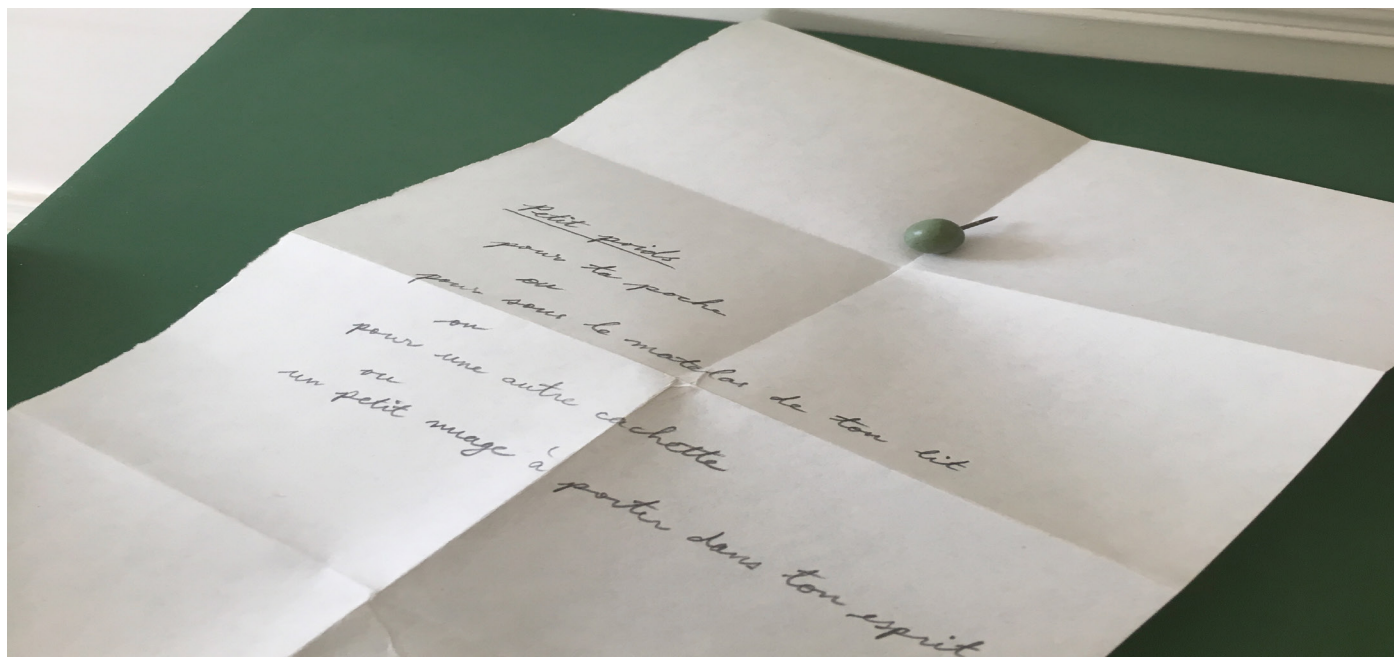 Petit poids
pour ta poche
ou
pour sous le matelas de ton lit
ou
pour une autre cachette
ou
un petit nuage à porter dans ton esprit